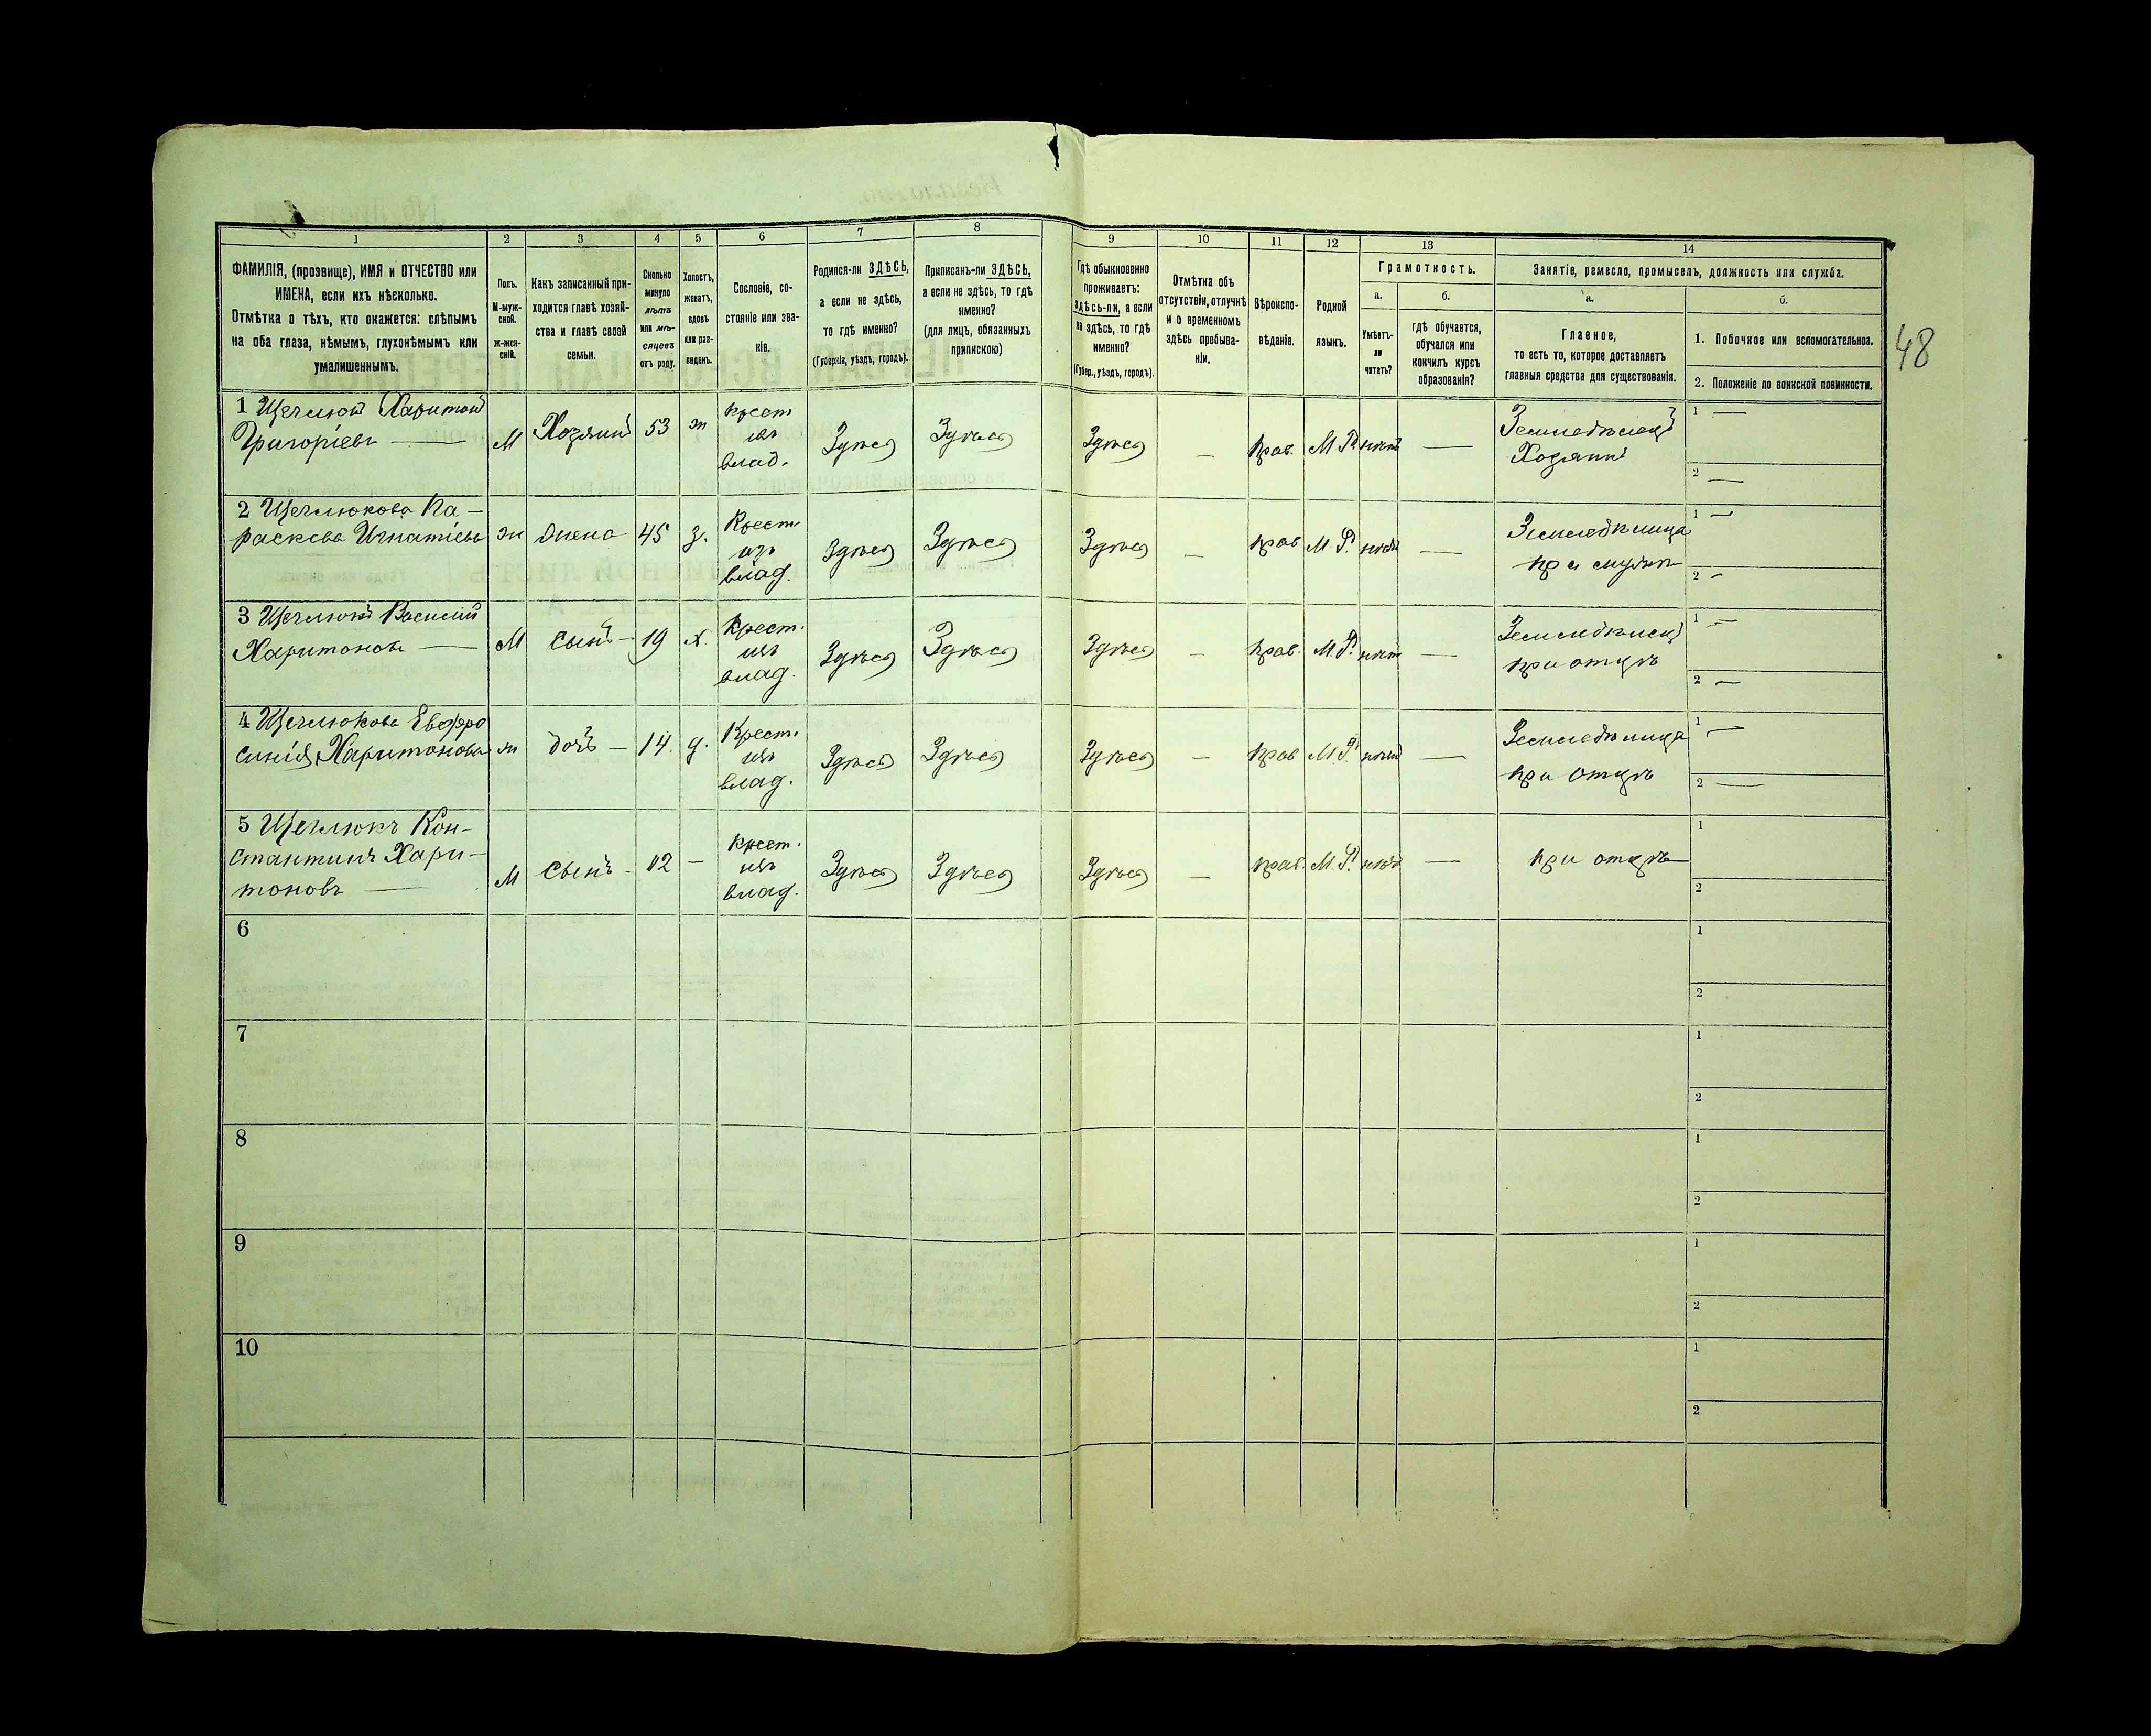 1 2 3 4 5 6 7 8 9 10 11 12 13 14
ФАМИЛІЯ, (прозвище), ИМЯ и ОТЧЕСТВО или
ИМЕНА, если ихъ нѣсколько.
Отмѣтка о тѣхъ, кто окажется: слѣпымъ
на оба глаза, нѣмымъ, глухонѣмымъ или
умалишеннымъ.
Полъ.
М-муж-
ской.
Ж-жен-
скій.
Какъ записанный при-
ходится главѣ хозяй-
ства и главѣ своей
семьи.
Сколько
минуло
лѣтъ
или мѣ-
сяцевъ
отъ роду.
Холостъ,
женатъ,
вдовъ
или раз-
веденъ.
Сословіе, со-
стояніе или зва-
ніе.
Родился-ли ЗДѢСЬ,
а если не здѣсь,
то гдѣ именно?
(Губернія, уѣздъ, городъ).
Приписанъ-ли ЗДѢСЬ,
а если не здѣсь, то гдѣ
именно?
(для лицъ, обязанныхъ
припискою)
Гдѣ обыкновенно
проживаетъ:
здѣсь-ли, а если
не здѣсь, то гдѣ
именно?
(Губер., уѣздъ, городъ).
Отмѣтка объ
отсутствіи, отлучкѣ
и о временномъ
здѣсь пробыва-
ніи.
Вѣроиспо-
вѣданіе.
Родной
языкъ.
Грамотность.
а.
Умѣетъ-
ли
читать?
б.
гдѣ обучается,
обучался или
кончилъ курсъ
образованія?
Занятіе, ремесло, промыселъ, должность или служба.
а.
Главное,
то есть то, которое доставляетъ
главныя средства для существованія.
б.
1. Побочное или вспомогательное.
2. Положеніе по воинской повинности.
48
1 Щеглюкъ Харитонъ
Григоріевъ —
М
Хозяинъ
53
ж
крест
изъ
влад.
Здѣсь
Здѣсь
Здѣсь
—
прав.
М.Р.
нѣтъ
—
Земледѣлецъ
Хозяинъ
1 —
2 —
2 Щеглюкова Па-
раскева Игнатіева
ж
жена
45
з.
Крест
изъ
влад.
Здѣсь
Здѣсь
Здѣсь
—
прав
М.Р.
нѣтъ
—
Земледѣлица
при мужѣ
1 —
2 —
3 Щеглюкъ Василій
Харитоновъ —
М
сынъ —
19
х.
Крест.
изъ
влад.
Здѣсь
Здѣсь
Здѣсь
—
прав.
М.Р.
нѣтъ
—
Земледѣлецъ
при отцѣ
1 —
2 —
4 Щеглюкова Евфро
синія Харитонова
ж
дочь —
14.
д.
Крест.
изъ
влад.
Здѣсь
Здѣсь
Здѣсь
—
прав
М.Р.
нѣтъ
—
Земледѣлица
при отцѣ
1 —
2 —
5 Щеглюкъ Кон-
стантинъ Хари-
тоновъ —
М
сынъ -
12
—
Крест.
изъ
влад.
Здѣсь
Здѣсь
Здѣсь
—
прав.
М.Р.
нѣтъ
—
при отцѣ
1
2
6
1
2
7
1
2
8
1
2
9
1
2
10
1
2